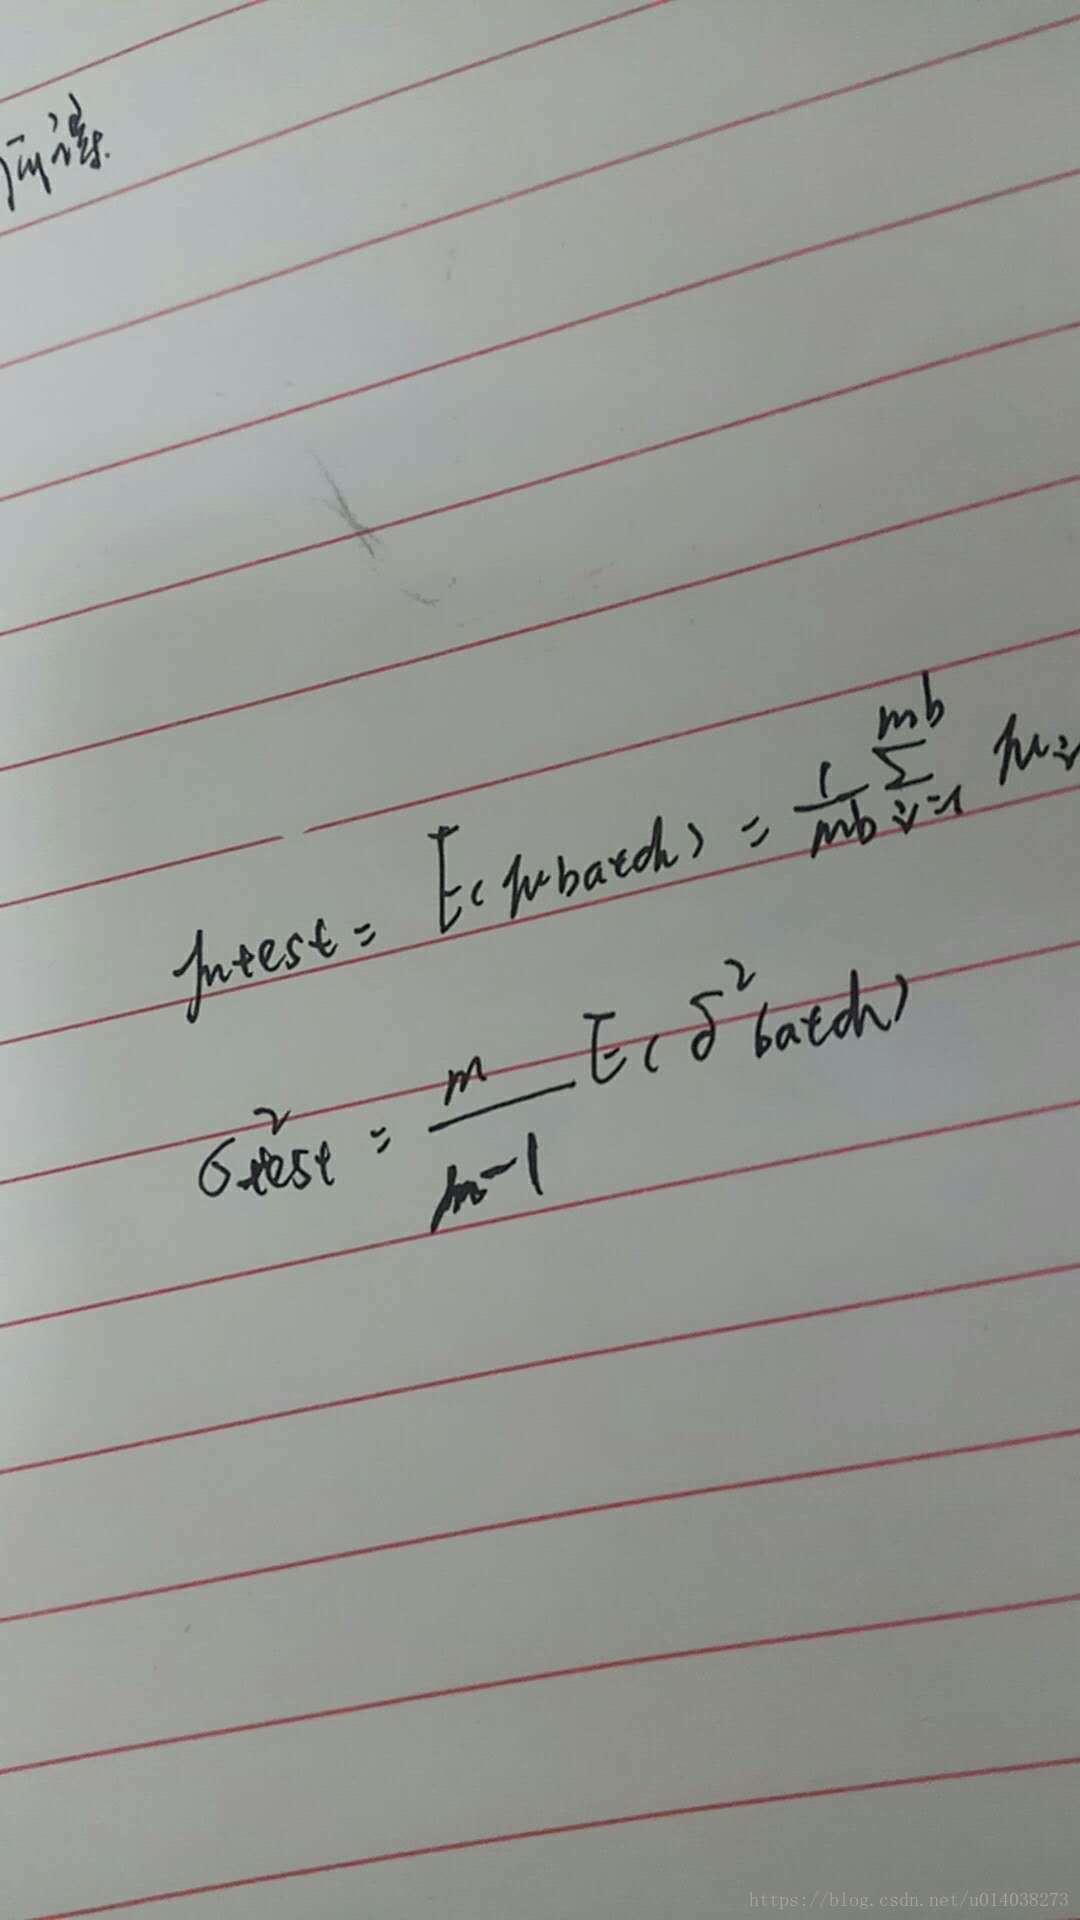 μtest = E(μbatch) = 1/mb ∑_{i=1}^{mb} μi
σ²test = m/(m-1) E(δ²batch)
https://blog.csdn.net/u014038273